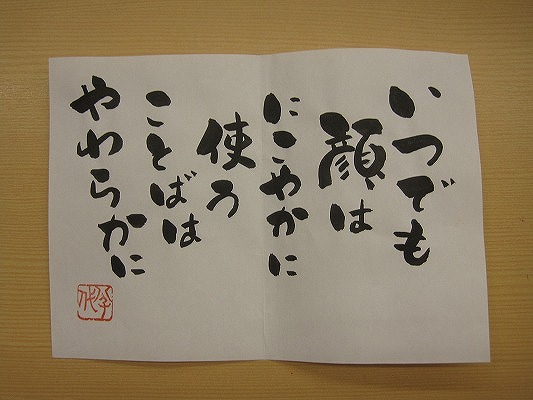 いつでも
顔は
にこやかに
使う
ことばは
やわらかに